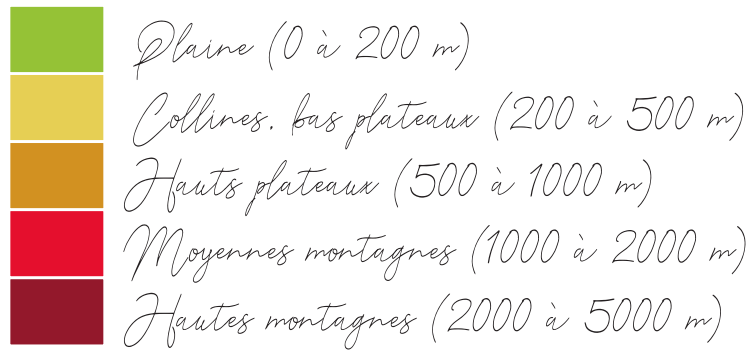 Plaine (0 à 200 m)
Collines, bas plateaux (200 à 500 m)
Hauts plateaux (500 à 1000 m)
Moyennes montagnes (1000 à 2000 m)
Hautes montagnes (2000 à 5000 m)